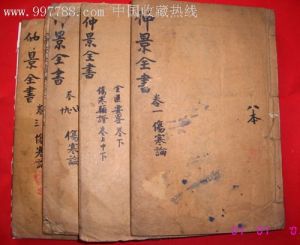 www.997788.com 中国收藏热线
仲景全書
卷三 傷寒論
景全書
傷寒論
仲景全書
金匱要畧 卷下
傷寒類證 卷上中下
仲景全書
卷一 傷寒論
八本